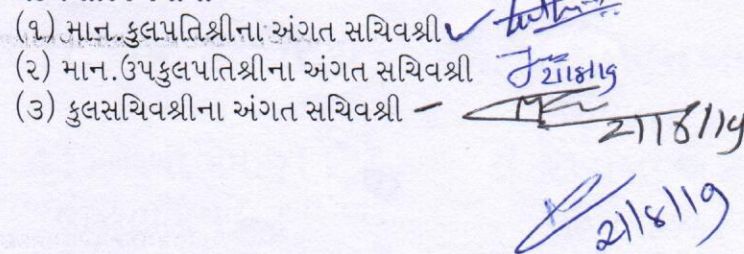 (૧) માન.કુલપતિશ્રીના અંગત સચિવશ્રી
(૨) માન.ઉપકુલપતિશ્રીના અંગત સચિવશ્રી 21/8/19
(૩) કુલસચિવશ્રીના અંગત સચિવશ્રી - 21/8/19
21/8/19